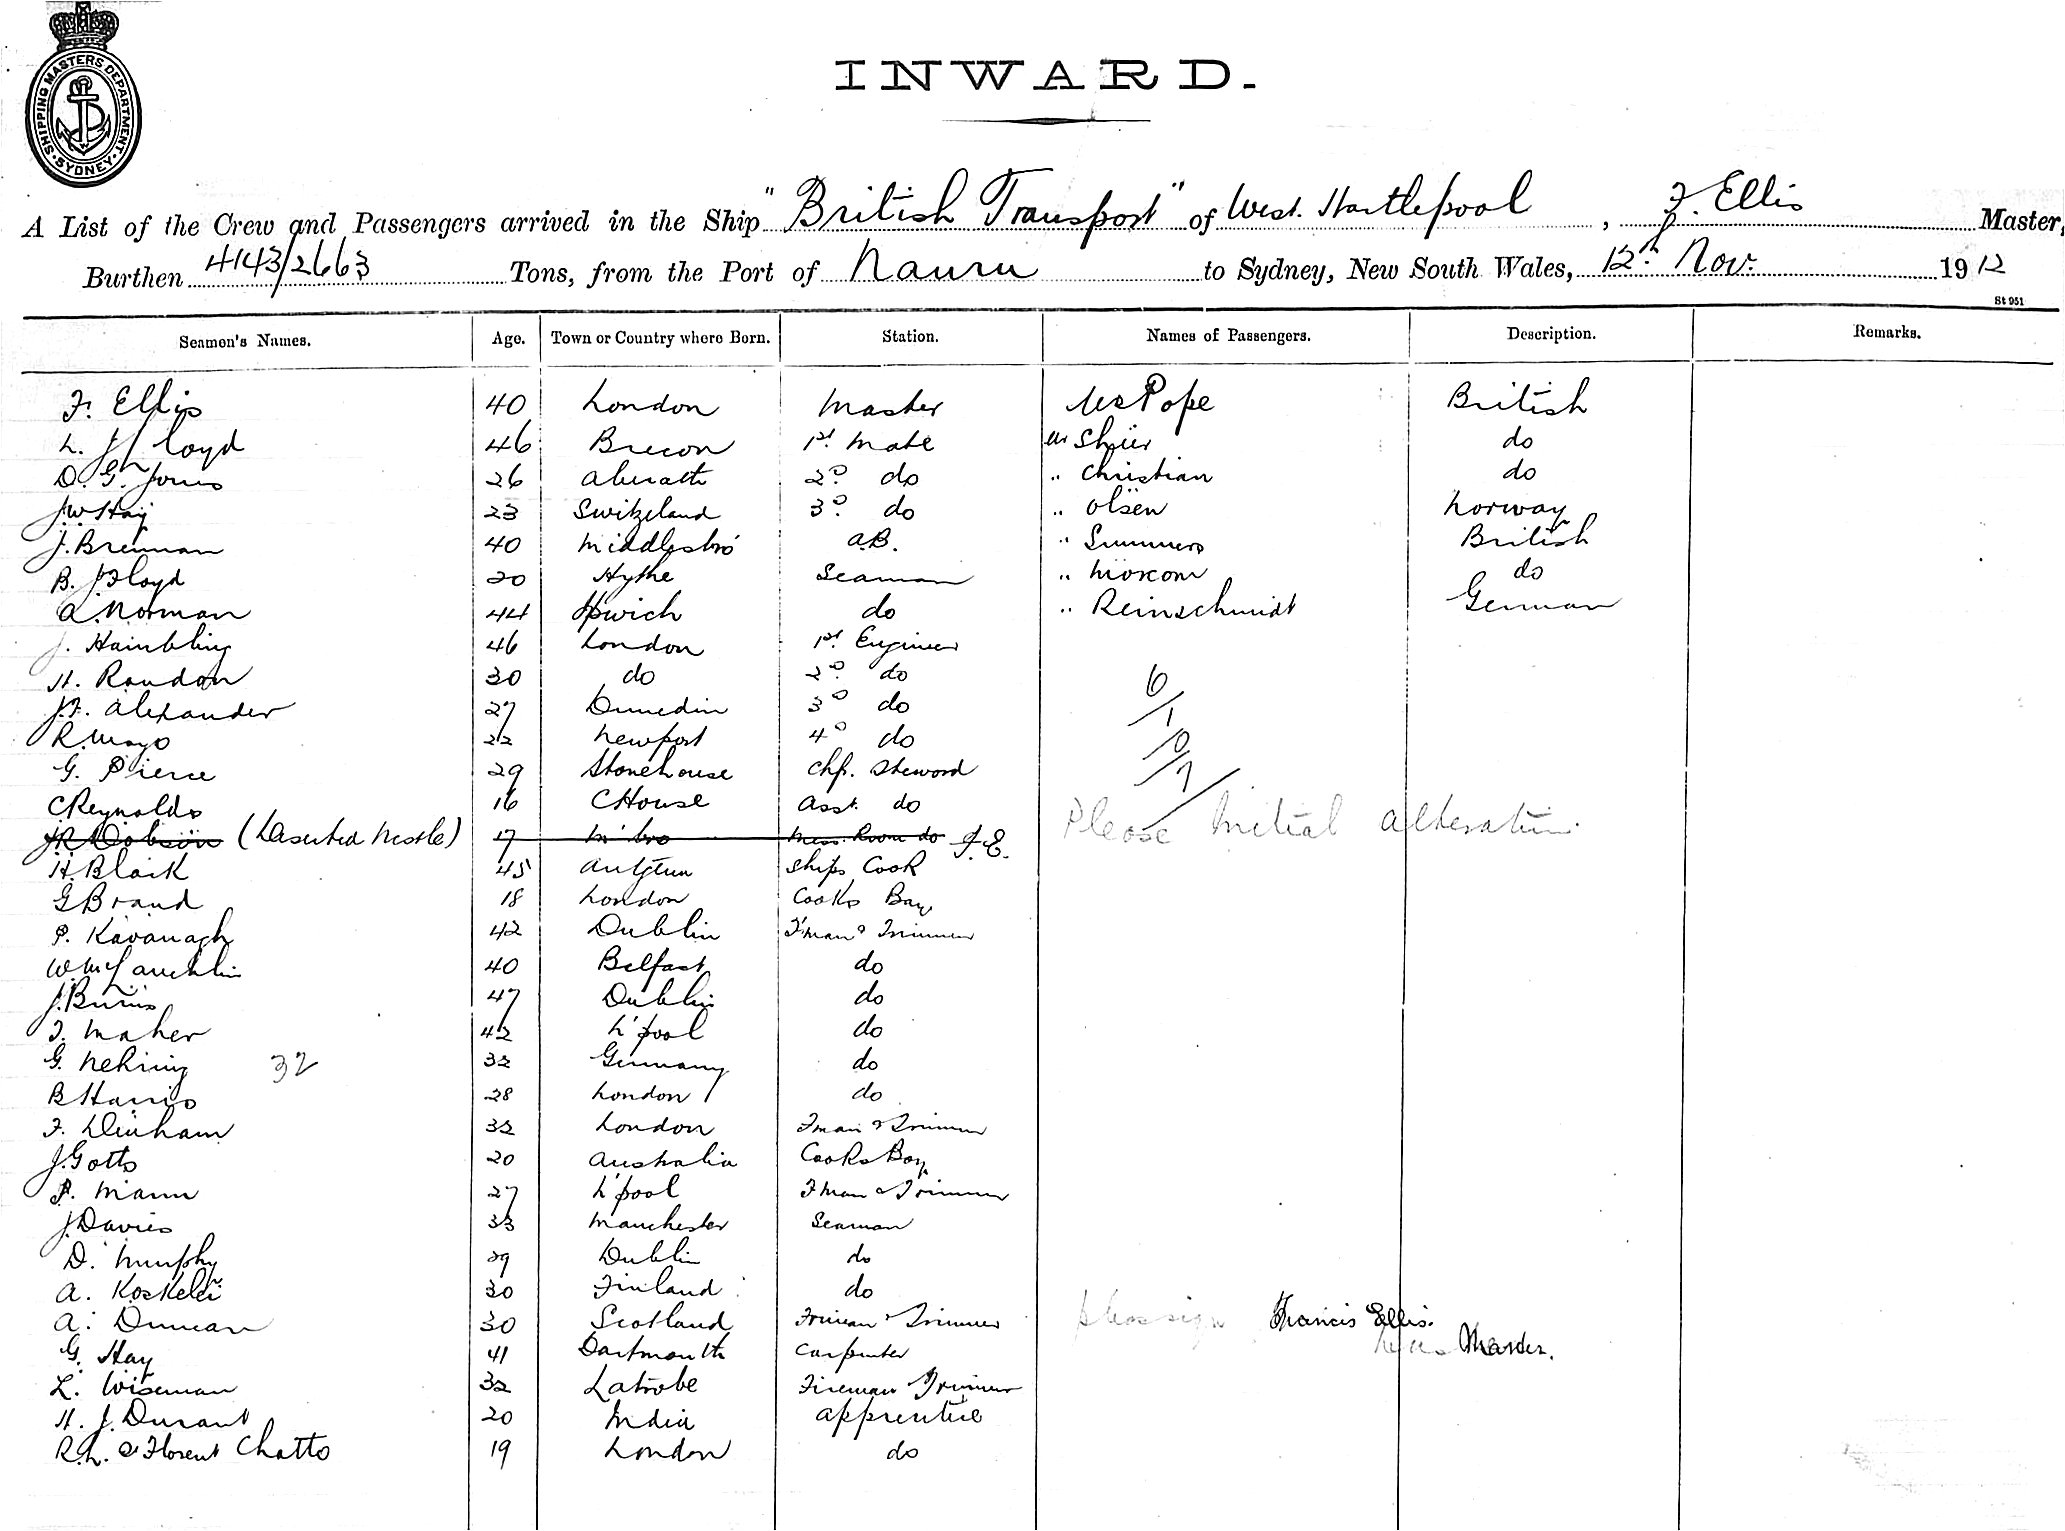 SHIPPING MASTERS DEPARTMENT. SYDNEY.
INWARD.
A List of the Crew and Passengers arrived in the Ship "British Transport" of West. Hartlepool, F. Ellis Master,
Burthen 4143/2663 Tons, from the Port of Nauru to Sydney, New South Wales, 12th Nov. 1912
St 951
Seamen's Names. Age. Town or Country where Born. Station. Names of Passengers. Description. Remarks.
F. Ellis 40 London Master Mr Pope British
L. J. Lloyd 46 Brecon 1st Mate Mr do
D. G. Jones 26 Aberath 2D do " Christian do
J.W. Hay 23 Switzeland 3D do " Olsen Norway
J. Brennan 40 Middlesbro' A.B. " Summers British
B. J. Lloyd 20 Hythe Seaman " Moxcom do
A. Norman 44 Ipwich do " Reinschmidt German
J. Hambling 46 London 1st Engineer
H. Roudon 30 do 2D do 6/1
J.F. Alexander 27 Dunedin 3D do
R. Mayo 22 Newport 4D do 0/7
G. Pierce 29 Stonehouse Chf. Steword
C Reynolds 16 C House Asst. do Please initial alteration
J.R. Dobson (Deserted Nestle) 17 M'bro Mess Room do F.E.
H. Black 45 Ships Cook
G Brand 18 London Cooks Boy
P. Kavanagh 42 Dublin F'man & Trimmer
W. McLauchlin 40 Belfast do
J. Burns 47 Dublin do
T. Maher 42 L'pool do
G. Nehring 32 32 Germany do
B Harris 28 London do
F. Denham 32 London Fman & Trimmer
J. Gotts 20 Australia Cooks Boy
P. Mann 27 L'pool Fman & Trimmer
J. Davies 33 Manchester Seaman
D. Murphy 29 Dublin do
A. Koskelei 30 Finland do
A. Duncan 30 Scotland Fireman & Trimmer please sign Francis Ellis.
G. Hay 41 Dartmouth Carpenter Master.
L. Wiseman 32 Latrobe Fireman Trimmer
H. J. Durant 20 India Apprentice
R.L. Florent Chatto 19 London do